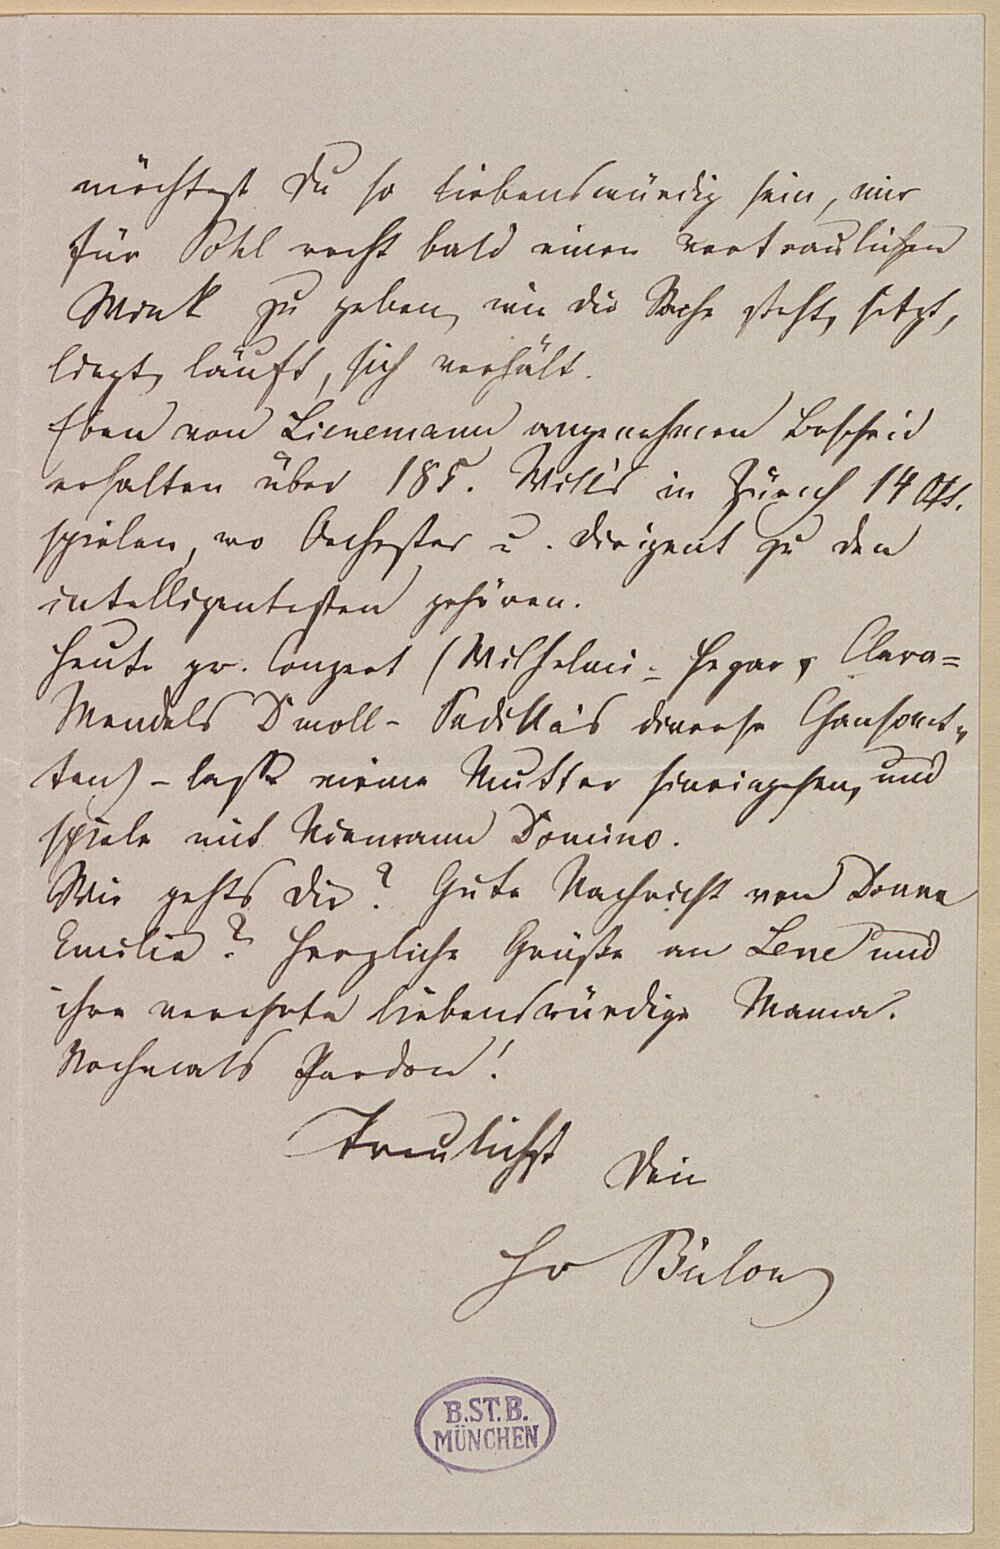 möchtest Du so liebenswürdig sein, mir
für Pohl recht bald einen vertraulichen
Wink zu geben, wie die Sache steht, sitzt,
liegt, läuft, sich verhält.
Eben von Lienemann angenehmen Bescheid
erhalten über 185. Will's in Zürich 14 Okt.
spielen, wo Orchester u. Dirigent zu den
intelligentesten gehören.
Heute gr. Conzert (Wilhelmi- Hegar, Clara-
Mendels Dmoll- Padilla's diverse Chansonet-
ten) – lasse meine Mutter hineingehen, und
spiele mit Niemann Domino.
Wie gehts Dir? Gute Nachricht von Donna
Emilia? Herzliche Grüße an Lene und
ihre verehrte liebenswürdige Mama.
Nochmals Pardon!
Treulichst Dein
Hv Bülow
B.ST.B.
MÜNCHEN